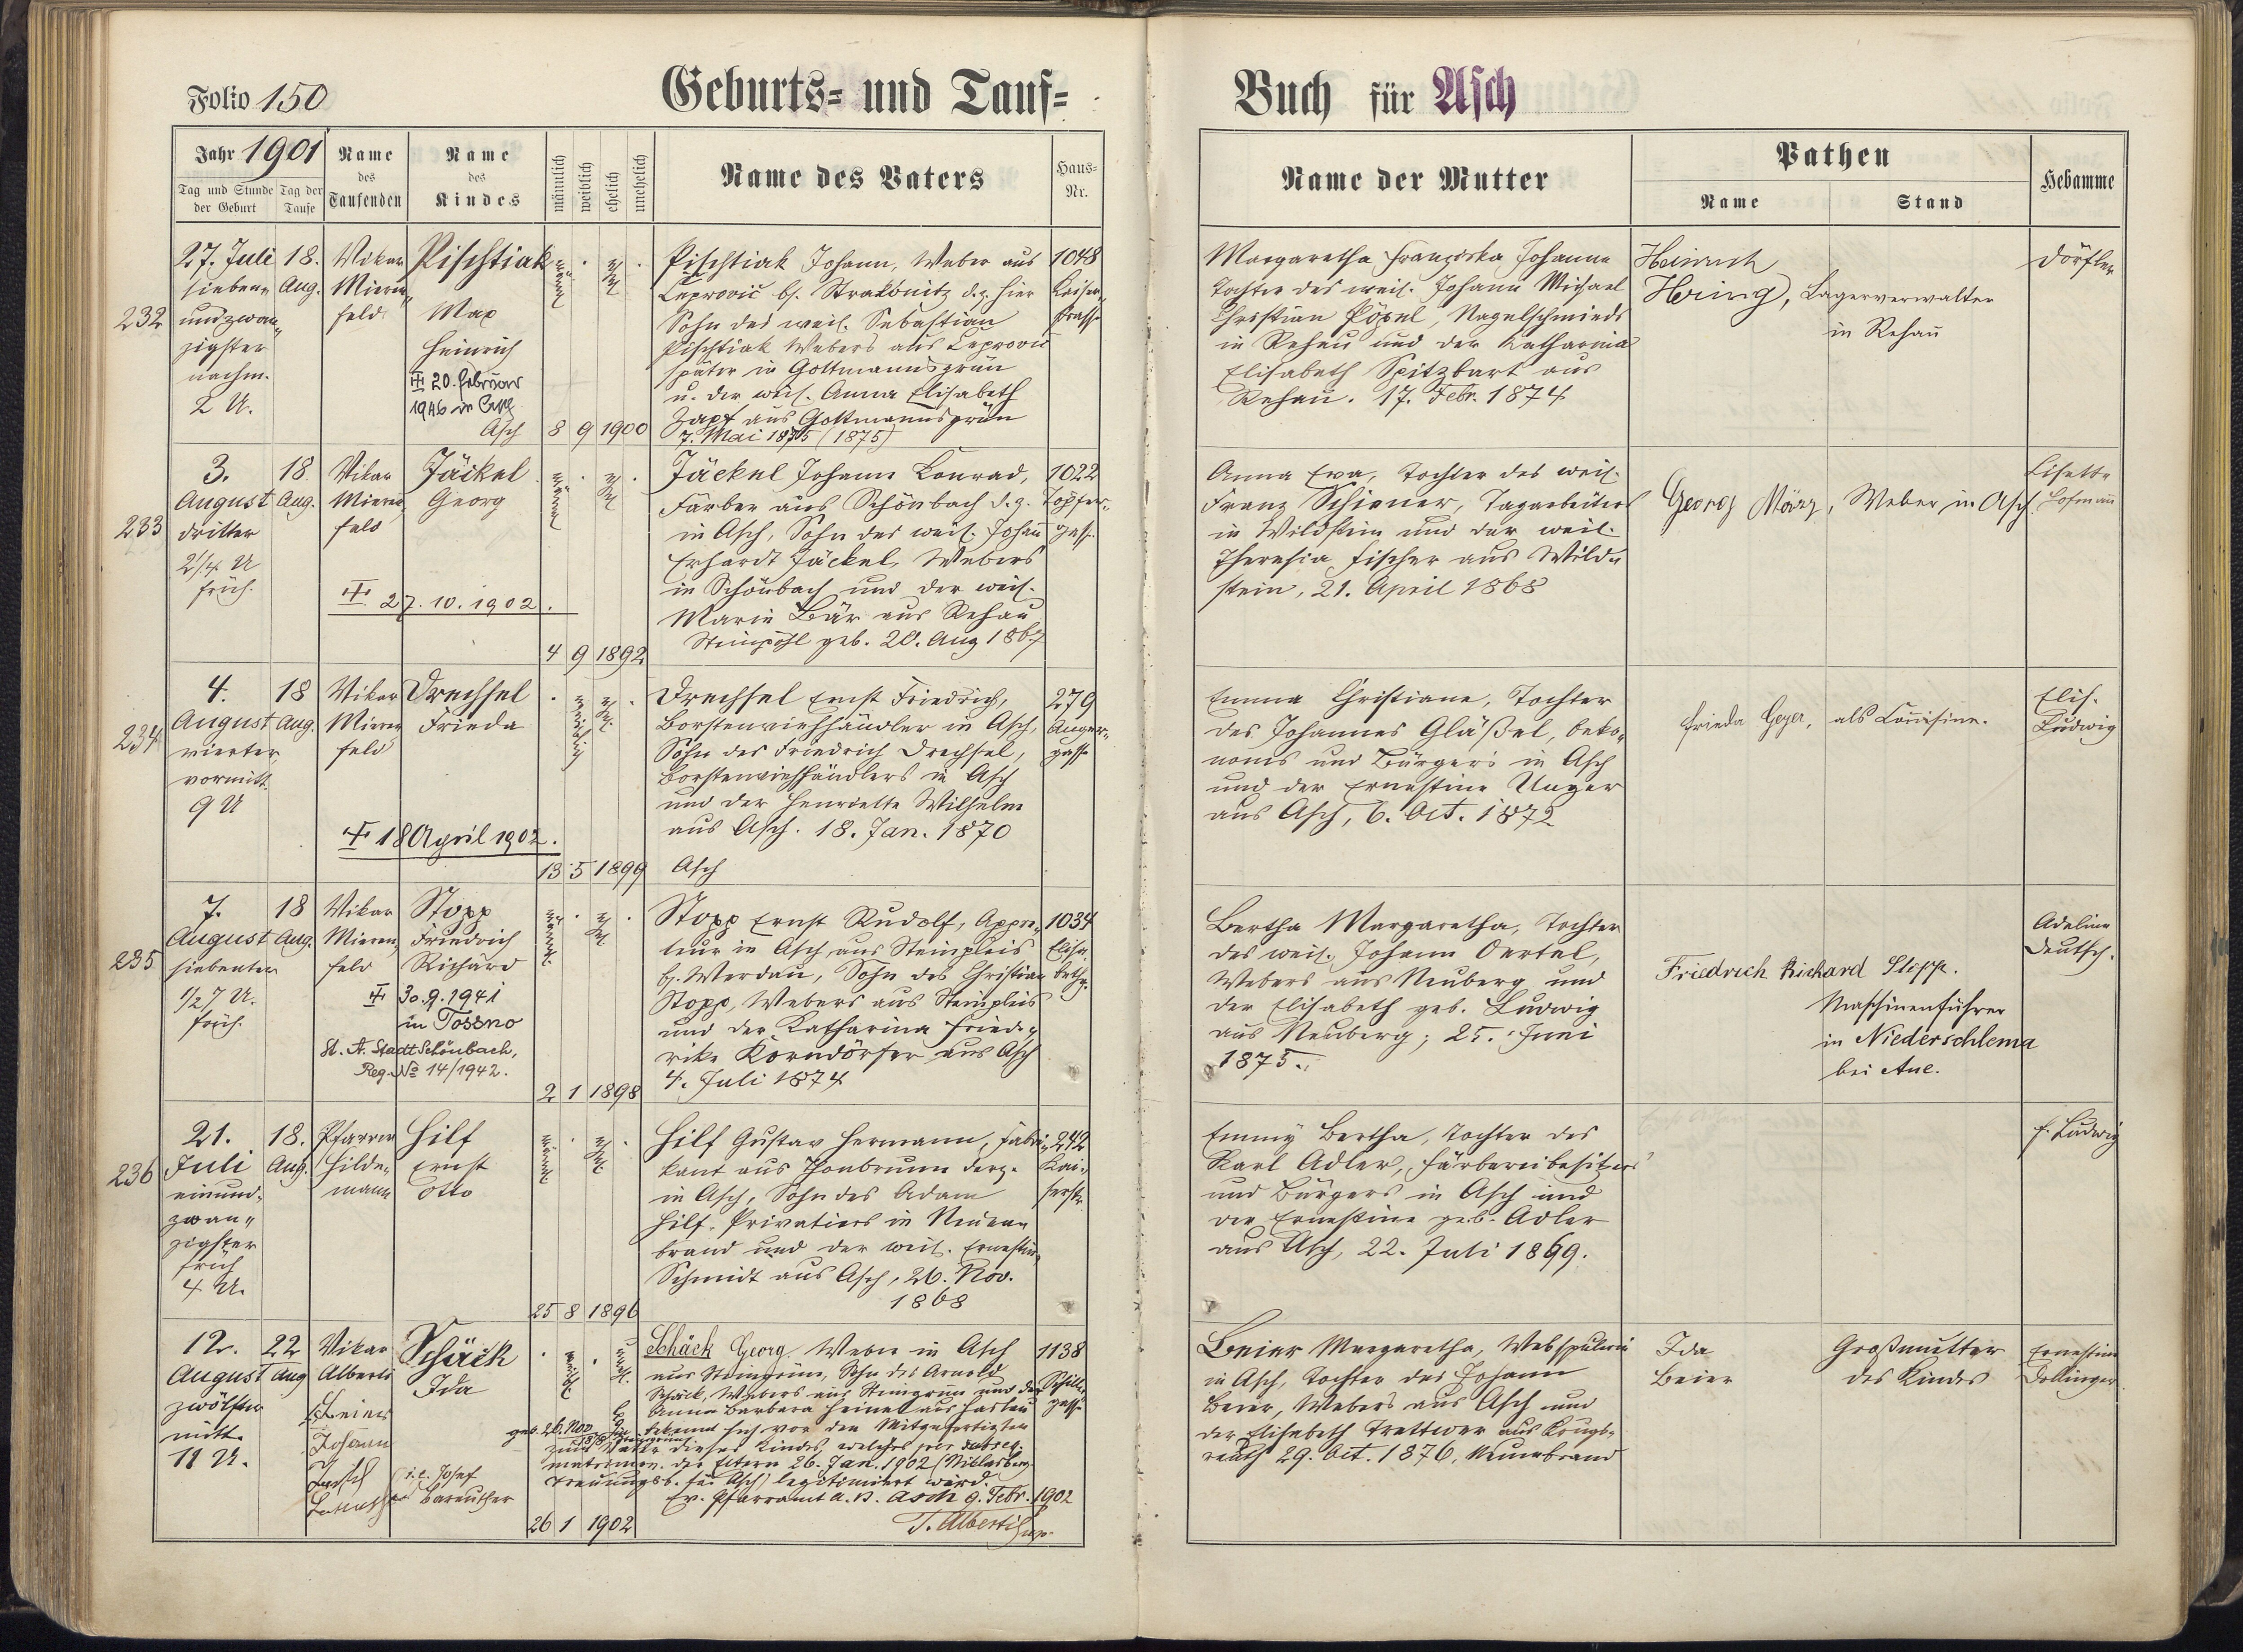 Folio 150
Geburts= und Tauf=
Buch für Asch
Jahr 1901
Tag und Stunde der Geburt
Tag der Taufe
Name des Taufenden
Name des Kindes
männlich
weiblich
ehelich
unehelich
Name des Vaters
Haus=Nr.
Name der Mutter
Pathen
Name
Stand
Hebamme
232
27. Juli
sieben-
undzwan-
zigster
nachm.
2 U.
18.
Aug.
Vikar
Mieren-
feld
Pischtiak
Max
Heinrich
20. Februar
1946 in
Asch
8 9 1900
Pischtiak Johann, Weber aus
Leprovič b. Strakonitz d. z. hier
Sohn des weil. Sebastian
Pischtiak Webers aus Leprovič
später in Gottmannsgrün
u. der weil. Anna Elisabeth
Zapf aus Gottmannsgrün
7. Mai 1875 (1875)
1048
Kaiser-
straße
Margaretha Franziska Johanna
Tochter des weil. Johann Michael
Christian Pöpel, Nagelschmieds
in Rehau und der Katharina
Elisabeth Spitzbart aus
Rehau. 17. Febr. 1874
Heinrich
Hering, Lagerverwalter
in Rehau
Dörfler
233
3.
August
dritter
2 1/4 U
früh.
18
Aug.
Vikar
Mieren-
feld
Jäckel
Georg
27.10.1902.
4 9 1892
Jäckel Johann Konrad,
Färber aus Schönbach d. z.
in Asch, Sohn des weil. Johann
Erhardt Jäckel, Webers
in Schönbach und der weil.
Marie Bär aus Rehau
Steinpöhl geb. 20. Aug 1867
1022
Töpfer-
gasse
Anna Eva, Tochter des weil.
Franz Schiener, Tagarbeiters
in Wildstein und der weil.
Theresia Fischer aus Wild-
stein, 21. April 1868
Georg März, Weber in Asch
Lisette
Hofmann
234
4.
August
vierter
vormitt.
9 U
18
Aug.
Vikar
Mieren-
feld
Drechsel
Frieda
18 April 1902.
13 5 1899
Drechsel Ernst Friedrich,
Borstenviehhändler in Asch,
Sohn des Friedrich Drechsel,
Borstenviehhändlers in Asch
und der Henriette Wilhelm
aus Asch. 18. Jan. 1870
Asch
279
Anger-
gasse
Emma Christiane, Tochter
des Johannes Gläßel, Oeko-
noms und Bürgers in Asch
und der Ernestine Unger
aus Asch, 6. Oct. 1872
Frieda Geyer, als Cousine.
Elis.
Ludwig
235
7.
August
siebenter
1/2 7 U.
früh.
18
Aug.
Vikar
Mieren-
feld
Stopp
Friedrich
Richard
30.9.1941
in Tossno
St. A. Stadt Schönbach,
Reg. No 14/1942.
2 1 1898
Stopp Ernst Rudolf, Appre-
teur in Asch aus Steinpleis
b. Werdau, Sohn des Christian
Stopp, Webers aus Steinpleis
und der Katharina Friede-
rike Korndörfer aus Asch
4. Juli 1874
1034
Elisa-
bethg.
Bertha Margaretha, Tochter
des weil. Johann Oertel,
Webers aus Neuberg und
der Elisabeth geb. Ludwig
aus Neuberg; 25. Juni
1875.
Friedrich Richard Stopp.
Maschinenführer
in Niederschlema
bei Aue.
Adeline
Deutsch.
236
21.
Juli
einund-
zwan-
zigster
früh
4 U.
18.
Aug.
Pfarrer
Hilde-
mann
Hilf
Ernst
Otto
25 8 1896
Hilf Gustav Hermann, Fabri-
kant aus Thonbrunn derz.
in Asch, Sohn des Adam
Hilf Privatiers in Neuen-
brand und der weil. Ernestine
Schmidt aus Asch, 26. Nov.
1868
242
Kai-
serstr.
Emmy Bertha, Tochter des
Karl Adler, Färbereibesitzers
und Bürgers in Asch und
der Ernestine geb. Adler
aus Asch, 22. Juli 1869.
E. Ludwig
12.
August
zwölfter
mitt.
11 U.
22
Aug
Vikar
Alberti
Beier
Johann
Josef
i.e. Josef
Bareuther
Schäck
Ida
26 1 1902
Schäck Georg Weber in Asch
aus Steingrün, Sohn des Arnold
Schäck, Webers aus Steingrün und der
Anna Barbara Heinel aus Haslau
geb. 26. Nov.
bekennt sich vor den Mitgefertigten
zum Vater dieses Kindes, welches per subseq.
matrimon. der Eltern 26. Jan. 1902 (Niklasberg
Trauungsb. für Asch) legitimiert wird.
Ev. Pfarramt A. B. Asch 9. Febr. 1902
T. Alberti
1138
Schiller-
gasse
Beier Margaretha, Webspulerin
in Asch, Tochter des Johann
Beier, Webers aus Asch und
der Elisabeth Trettwer aus Krugs-
reuth 29. Oct. 1876. Neuenbrand
Ida
Beier
Großmutter
des Kindes
Ernestine
Dollinger